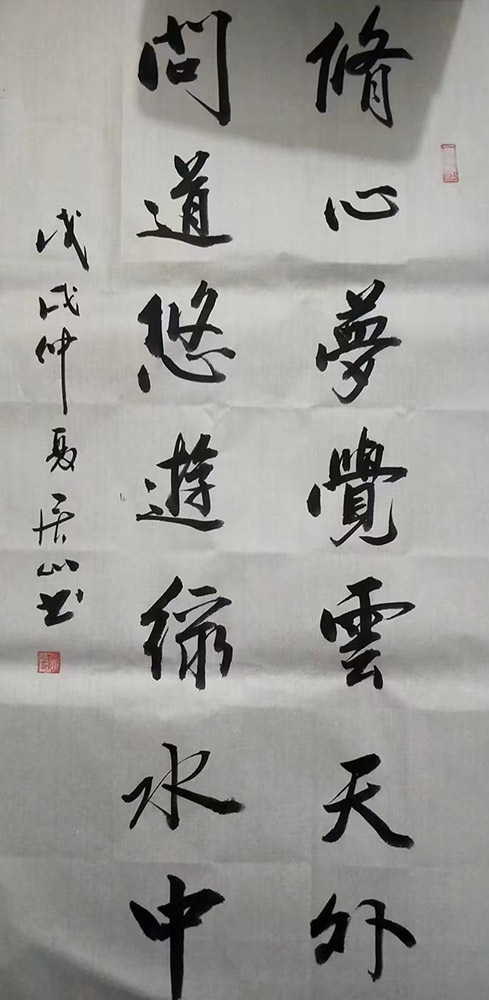 脩心夢覺雲天外
問道悠遊綠水中
戊戌仲夏居山书